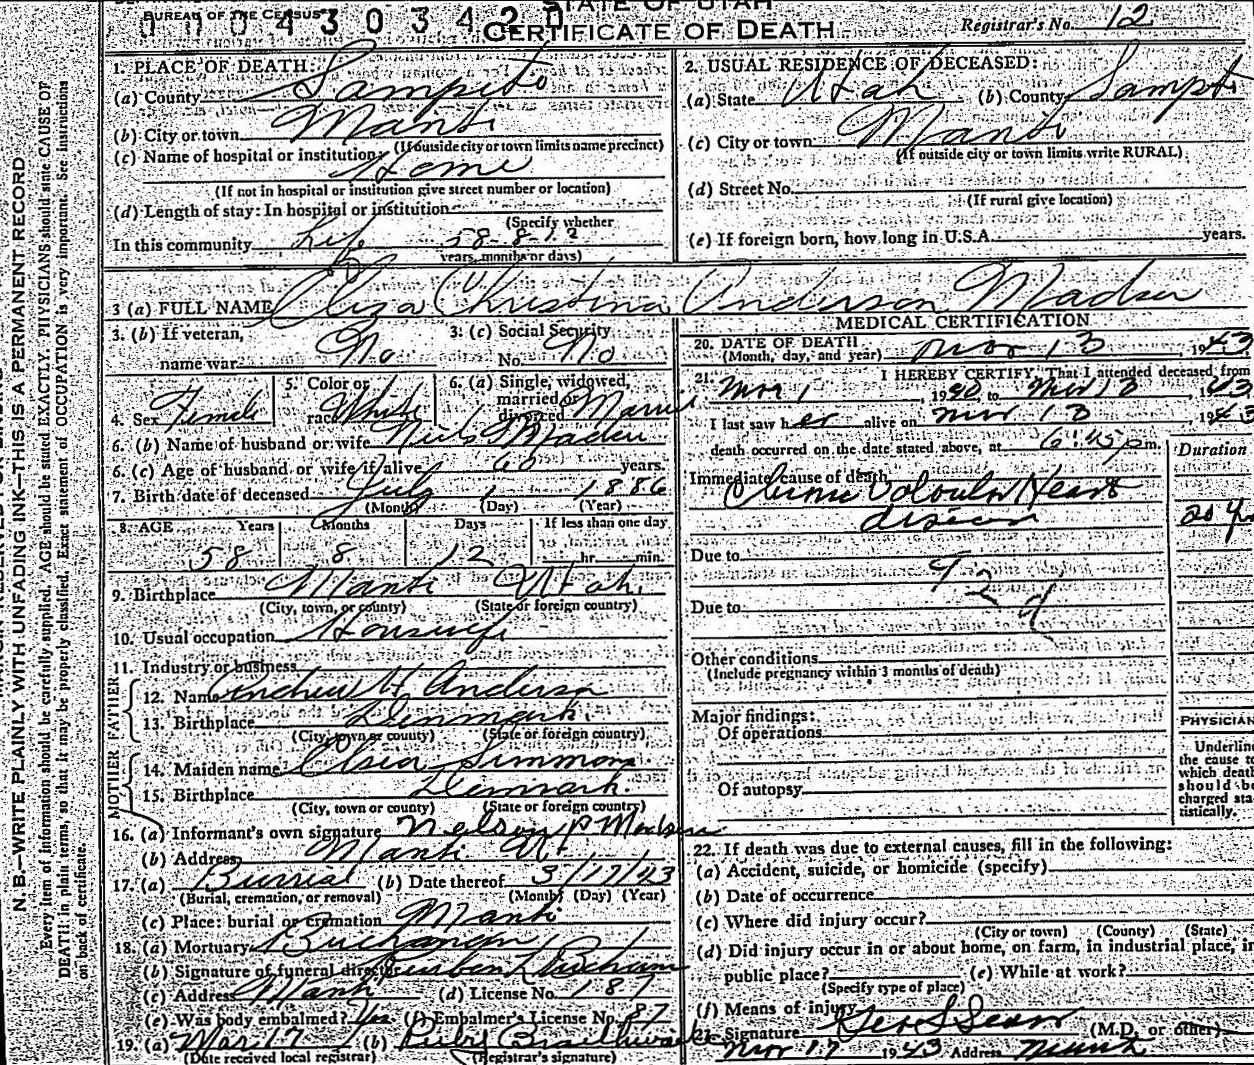 BUREAU OF THE CENSUS
STATE OF UTAH
CERTIFICATE OF DEATH
Registrar's No. 12
1. PLACE OF DEATH:
(a) County Sanpete
(b) City or town Manti
(If outside city or town limits name precinct)
(c) Name of hospital or institution: Home
(If not in hospital or institution give street number or location)
(d) Length of stay: In hospital or institution
(Specify whether
In this community Life 58-8-12
years, months or days)
2. USUAL RESIDENCE OF DECEASED:
(a) State Utah (b) County
(c) City or town Manti
(If outside city or town limits write RURAL)
(d) Street No.
(If rural give location)
(e) If foreign born, how long in U.S.A. years.
3 (a) FULL NAME Eliza Christina Anderson Madsen
3. (b) If veteran,
name war No
3. (c) Social Security
No. No
4. Sex Female
5. Color or
race White
6. (a) Single, widowed,
married or
divorced
6. (b) Name of husband or wife Madsen
6. (c) Age of husband or wife if alive 60 years.
7. Birth date of deceased July 1 1886
(Month) (Day) (Year)
8. AGE Years Months Days If less than one day
58 8 12 hr. min.
9. Birthplace Manti Utah
(City, town, or county) (State or foreign country)
10. Usual occupation Housewife
11. Industry or business
FATHER
12. Name Andrew H. Anderson
13. Birthplace Denmark
(City, town or county) (State or foreign country)
MOTHER
14. Maiden name Simmons
15. Birthplace Denmark.
(City, town or county) (State or foreign country)
16. (a) Informant's own signature Nelson P Madsen
(b) Address Manti Ut
17. (a) Burial (b) Date thereof 3/17/43
(Burial, cremation, or removal) (Month) (Day) (Year)
(c) Place: burial or cremation Manti
18. (a) Mortuary Buchanan
(b) Signature of funeral director
(c) Address Manti (d) License No. 187
(e) Was body embalmed? Yes (f) Embalmer's License No. 87
19. (a) Mar 17 (b) Ruby Braithwaite
(Date received local registrar) (Registrar's signature)
MEDICAL CERTIFICATION
20. DATE OF DEATH
(Month, day, and year) Mar 13, 1943
21. I HEREBY CERTIFY, That I attended deceased from
Mar 1, 1940 to Mar 13, 1943.
I last saw her alive on Mar 13 1943
death occurred on the date stated above, at 6:45 p m.
Duration
Immediate cause of death Heart
disease
20 yr
Due to
92d
Due to
Other conditions
(Include pregnancy within 3 months of death)
Major findings:
Of operations
Of autopsy
PHYSICIAN
Underline
the cause to
which death
should be
charged sta-
tistically.
22. If death was due to external causes, fill in the following:
(a) Accident, suicide, or homicide (specify)
(b) Date of occurrence
(c) Where did injury occur?
(City or town) (County) (State)
(d) Did injury occur in or about home, on farm, in industrial place, in
public place? (e) While at work?
(Specify type of place)
(f) Means of injury
Signature Geo L Sears (M.D. or other)
Mar 17 1943 Address Manti
N.B.—WRITE PLAINLY WITH UNFADING INK—THIS IS A PERMANENT RECORD
Every item of information should be carefully supplied. AGE should be stated EXACTLY. PHYSICIANS should state CAUSE OF
DEATH in plain terms, so that it may be properly classified. Exact statement of OCCUPATION is very important. See Instructions
on back of certificate.